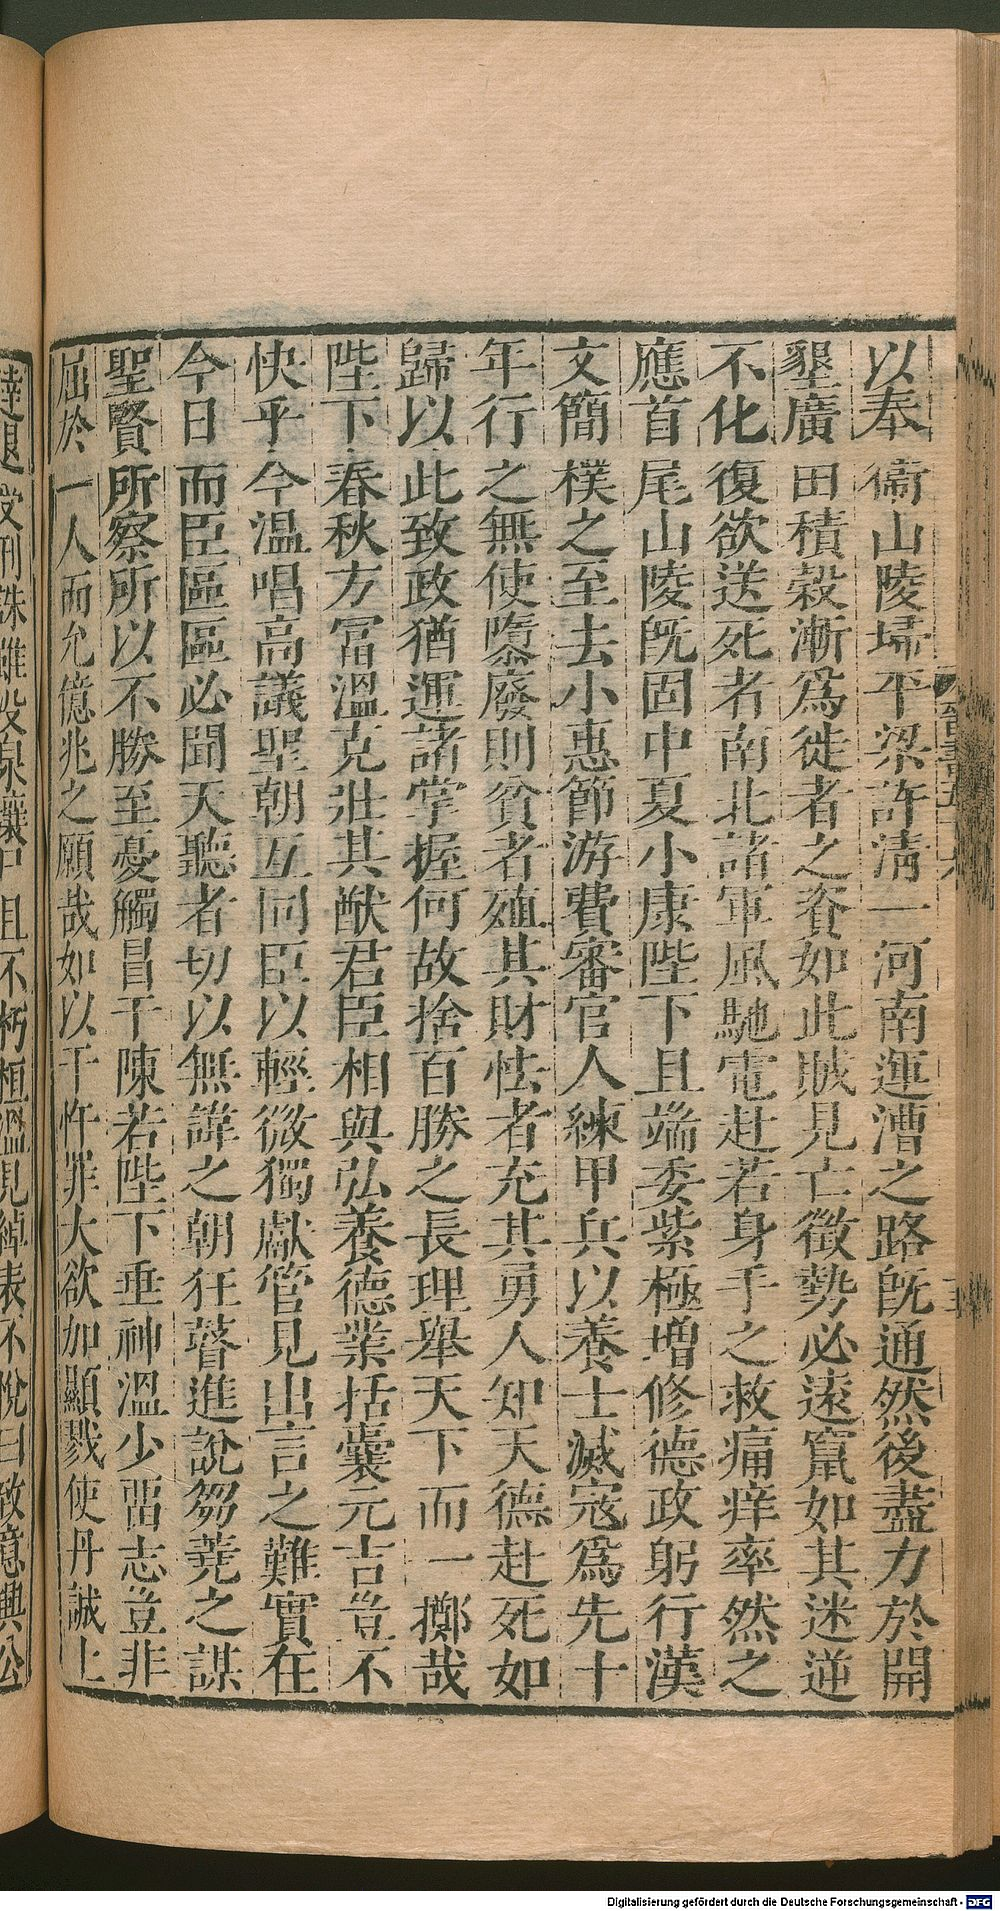 以奉衞山陵埽平梁許淸一河南運漕之路旣通然後盡力於開
墾廣田積穀漸爲徙者之資如此賊見亡徵勢必遠竄如其迷逆
不化復欲送死者南北諸軍風馳電赴若身手之救痛痒率然之
應首尾山陵旣固中夏小康陛下且端委紫極增修德政躬行漢
文簡樸之至去小惠節游費審官人練甲兵以養士滅寇爲先十
年行之無使隳廢則貧者殖其財怯者充其勇人知天德赴死如
歸以此致政猶運諸掌握何故捨百勝之長理舉天下而一擲哉
陛下春秋方富溫克壯其猷君臣相與弘養德業括囊元吉豈不
快乎今溫唱高議聖朝互同臣以輕微獨獻管見出言之難實在
今日而臣區區必聞天聽者切以無諱之朝狂瞽進說芻蕘之謀
聖賢所察所以不勝至憂觸冒干陳若陛下垂神溫少留志豈非
屈於一人而允億兆之願哉如以干忤罪大欲加顯戮使丹誠上
達退受刑誅雖沒泉壤尸且不朽桓溫見綽表不悅曰致意興公
Digitalisierung gefördert durch die Deutsche Forschungsgemeinschaft - DFG